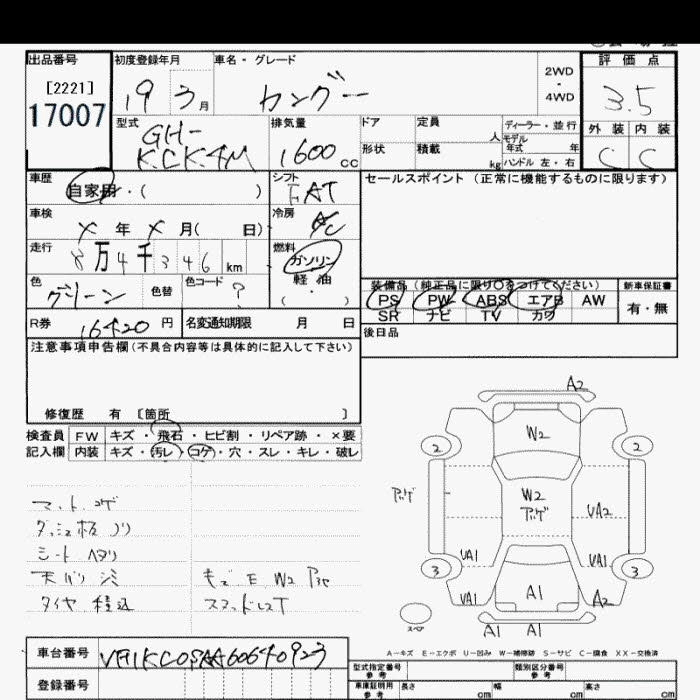 出品番号 初度登録年月 車名・グレード 評価点
[2221]
17007
19 3月 カングー 2WD・4WD 3.5
型式 GH-KCK4M
排気量 1600 cc
ドア 定員 人 ディーラー・並行
モデル年式 年
形状 積載 kg ハンドル 左・右
外装 内装
C C
車歴 自家用・( )
シフト FAT
セールスポイント (正常に機能するものに限ります)
車検 X 年 X 月( 日)
冷房 A/C
走行 8万4千346km
燃料 ガソリン 軽油 ・ ( )
色 グリーン 色替 色コード ?
装備品 (純正品に限り○をつけてください) 新車保証書
PS PW ABS エアB AW 有・無
SR ナビ TV カワ
R券 16420 円 名変通知期限 月 日
後日品
注意事項申告欄 (不具合内容等は具体的に記入して下さい)
修復歴 有 [箇所 ]
検査員 FW キズ・飛石・ヒビ割・リペア跡・×要
記入欄 内装 キズ・汚レ・コゲ・穴・スレ・キレ・破レ
マット コゲ
ダッシュ板 ノリ
シート ヘタリ
天バリ シミ
タイヤ 積込
キズ E W2
A2
W2
2 2
アゲ W2 アゲ UA2
UA1 UA1
3 3
UA1 A1 A2
スペア A1 A1
A-キズ E-エクボ U-凹み W-補修跡 S-サビ C-腐食 XX-交換済
車台番号
登録番号
型式指定番号 参考 類別区分番号 参考
車庫証明用 参考 長さ cm 幅 cm 高さ cm